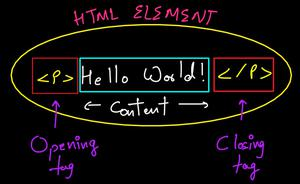 HTML ELEMENT
<P> Hello World! </P>
Content
Opening tag
Closing tag